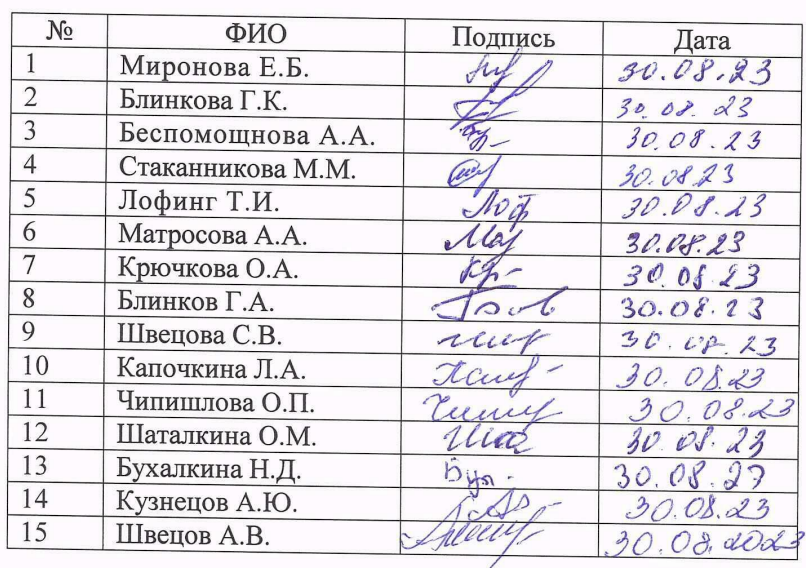 № ФИО Подпись Дата
1 Миронова Е.Б. 30.08.23
2 Блинкова Г.К. 30.08.23
3 Беспомощнова А.А. 30.08.23
4 Стаканникова М.М. 30.08.23
5 Лофинг Т.И. Лоф 30.08.23
6 Матросова А.А. 30.08.23
7 Крючкова О.А. 30.08.23
8 Блинков Г.А. 30.08.23
9 Швецова С.В. 30.08.23
10 Капочкина Л.А. 30.08.23
11 Чипишлова О.П. 30.08.23
12 Шаталкина О.М. 30.08.23
13 Бухалкина Н.Д. 30.08.23
14 Кузнецов А.Ю. 30.08.23
15 Швецов А.В. 30.08.2023